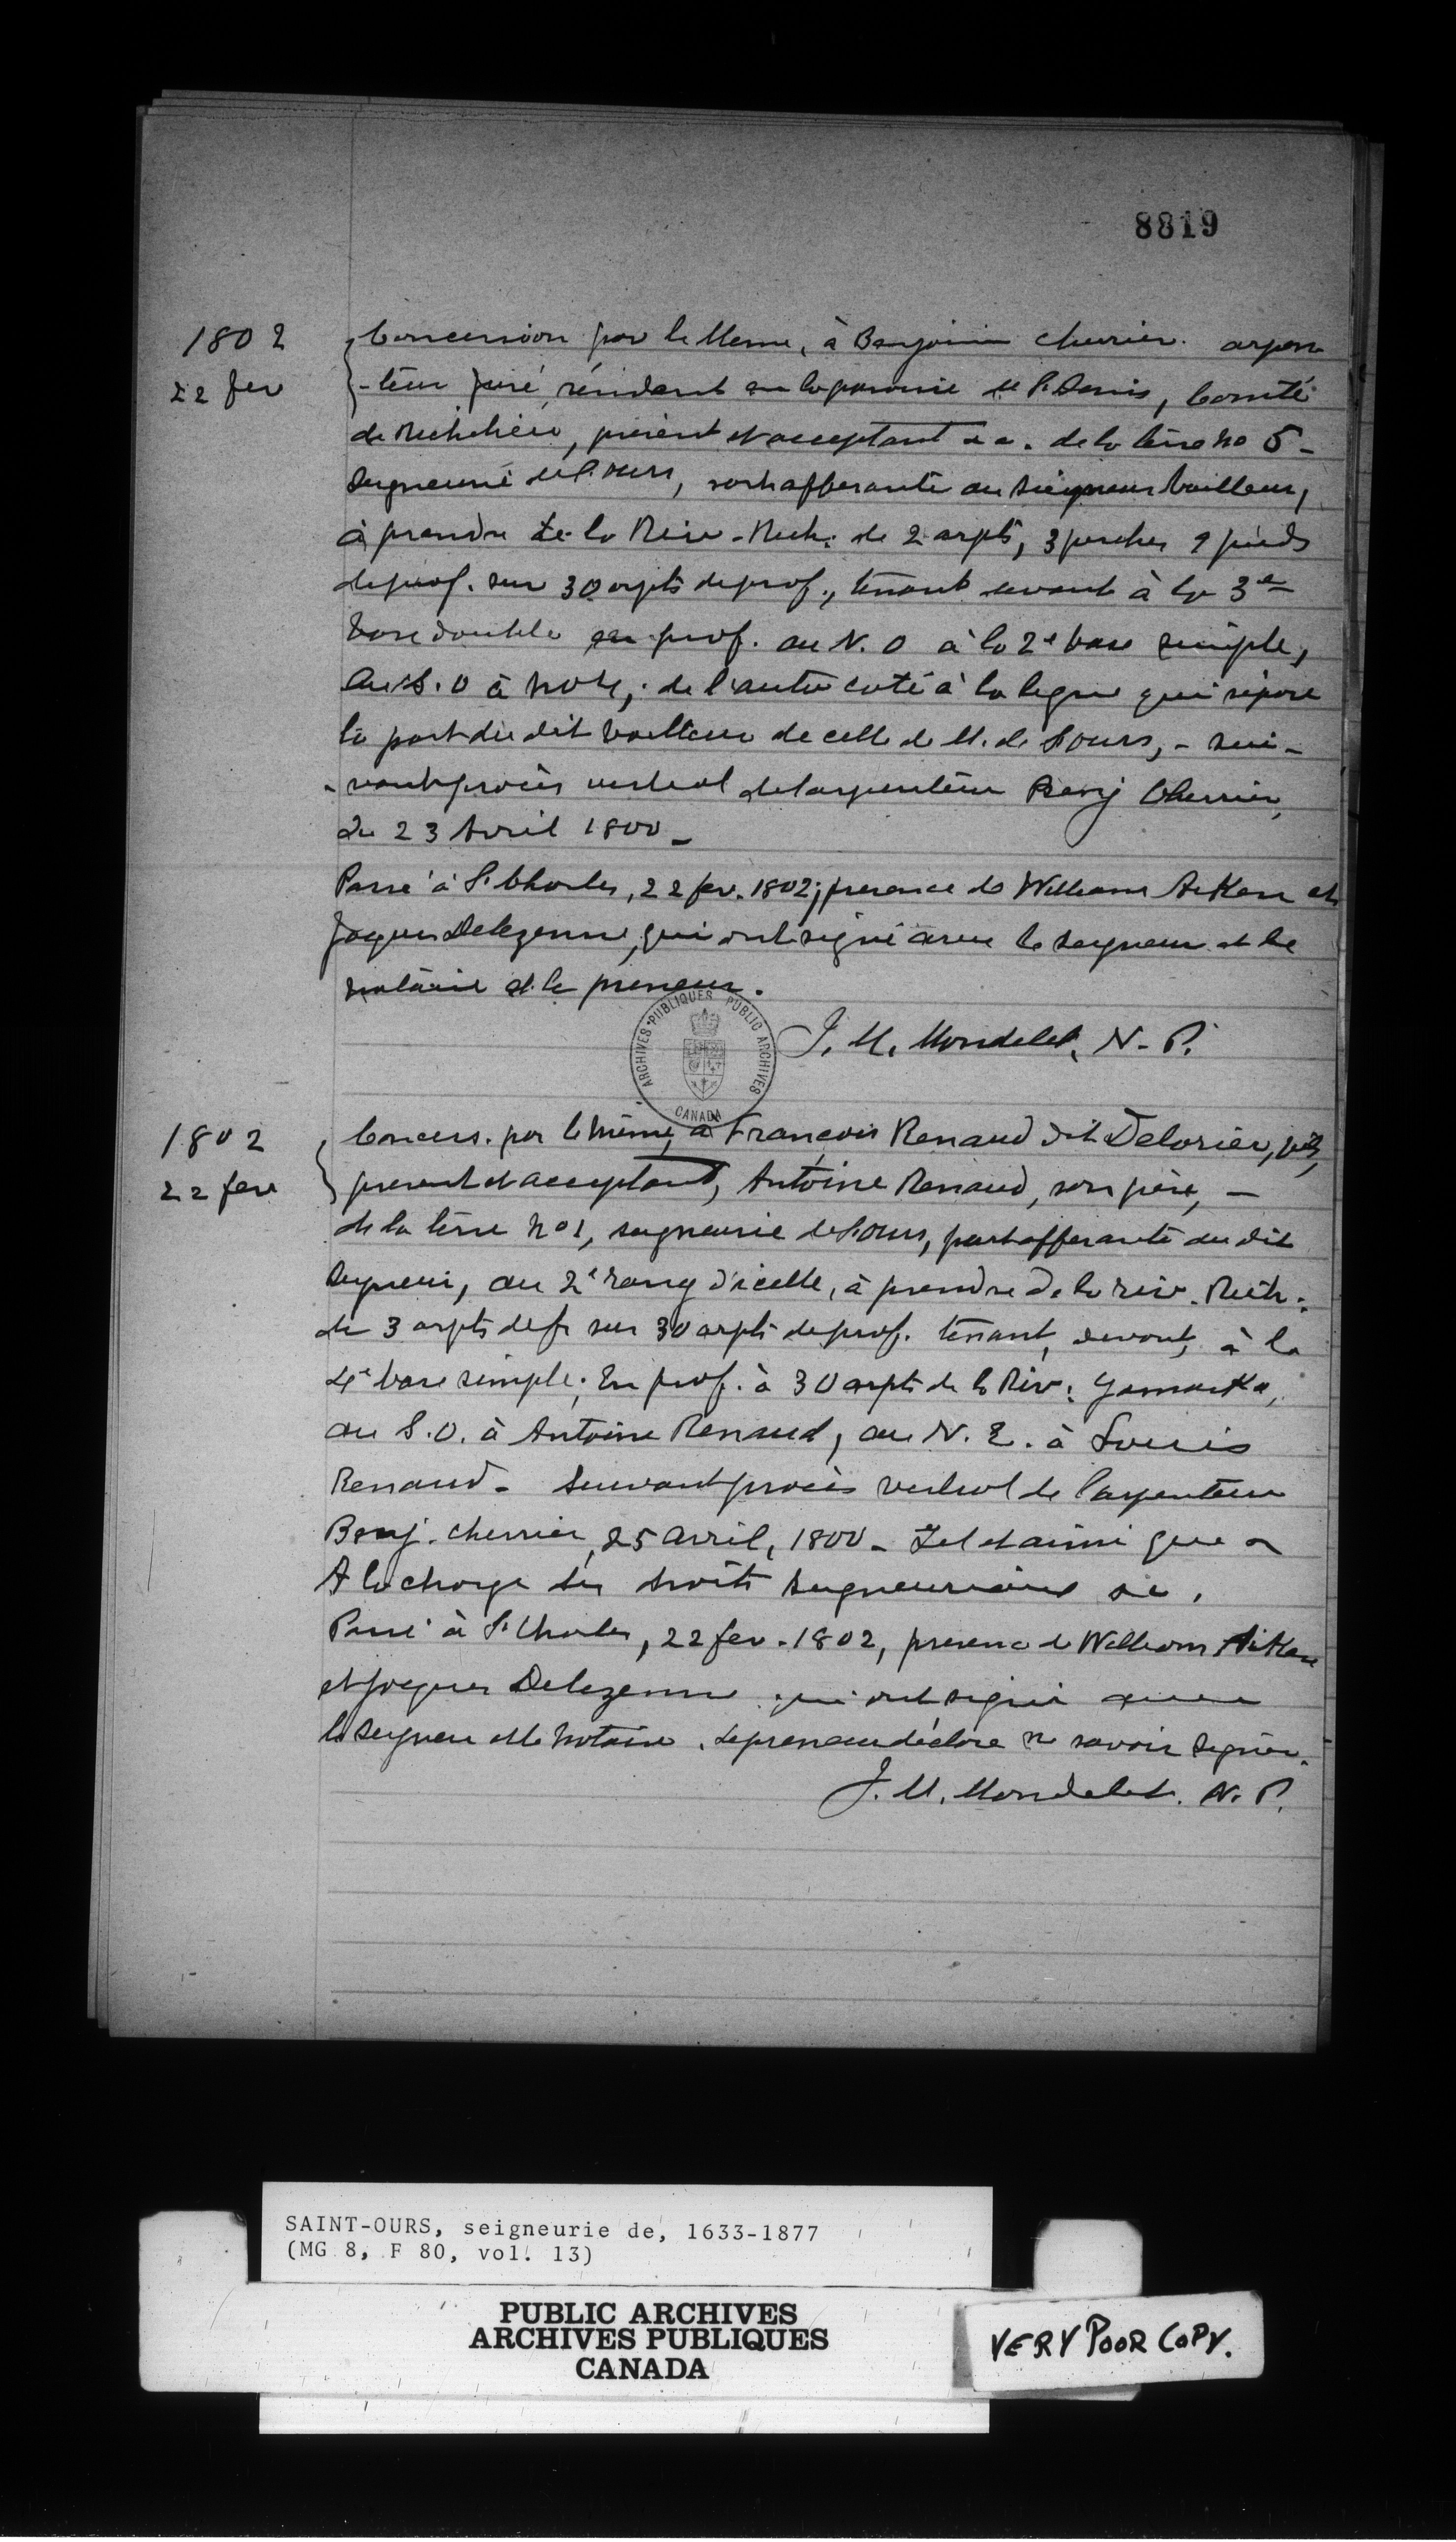 8819
1802
22 fev
Concession par le Meme, à Benjamin Cherrier. arpen
-teur juré, résidant en la paroisse de St Denis, Comté
de Richelieu, présent et acceptant &a. de la terre no 5 -
Seigneurie de St. Ours, part afferante au Seigneur bailleur,
à prendre de la Riv. Rich: de 2 arpts, 3 perches 9 pieds
de prof. sur 30 arpts de prof., tenant devant à la 3e
base double en prof. au N. O à la 2e base simple,
Au S. O à no 4, de l'autre coté à la ligne qui sépare
la part du dit bailleur de celle de M. de St Ours, - sui-
-vant procès verbal de l'arpenteur Benj Cherrier,
du 23 Avril 1800 -
Passé à St Charles, 22 fev. 1802, presence de William Aitken et
Jacques Delezenne, qui ont signé avec le seigneur et le
notaire et le preneur.
J. M. Mondelet, N. P.
ARCHIVES PUBLIQUES PUBLIC ARCHIVES
CANADA
1802
22 fev
Concess. par le même, à François Renaud dit Delorier, fils,
present et acceptant, Antoine Renaud, son père, -
de la terre no 1, seigneurie de St Ours, part afferante du dit
Seigneur, au 2e rang d'icelle, à prendre de la riv. Rich:
de 3 arpts de fr sur 30 arpts de prof. tenant, devant, à la
4e base simple; En prof. à 30 arpts de la Riv: Yamaska,
au S. O. à Antoine Renaud, au N. E. à Louis
Renaud - Suivant procès verbal de l'arpenteur
Benj. Cherrier, 25 avril, 1800 - Tel et ainsi que &
A la charge des droits Seigneuriaux &c.
Passé à St Charles, 22 fev. 1802, presence de William Aitken
et Jacques Delezenne qui ont signé avec
le seigneur et le notaire. Le preneur déclare ne savoir signer.
J. M. Mondelet. N. P.
SAINT-OURS, seigneurie de, 1633-1877
(MG 8, F 80, vol. 13)
PUBLIC ARCHIVES
ARCHIVES PUBLIQUES
CANADA
VERY POOR COPY.